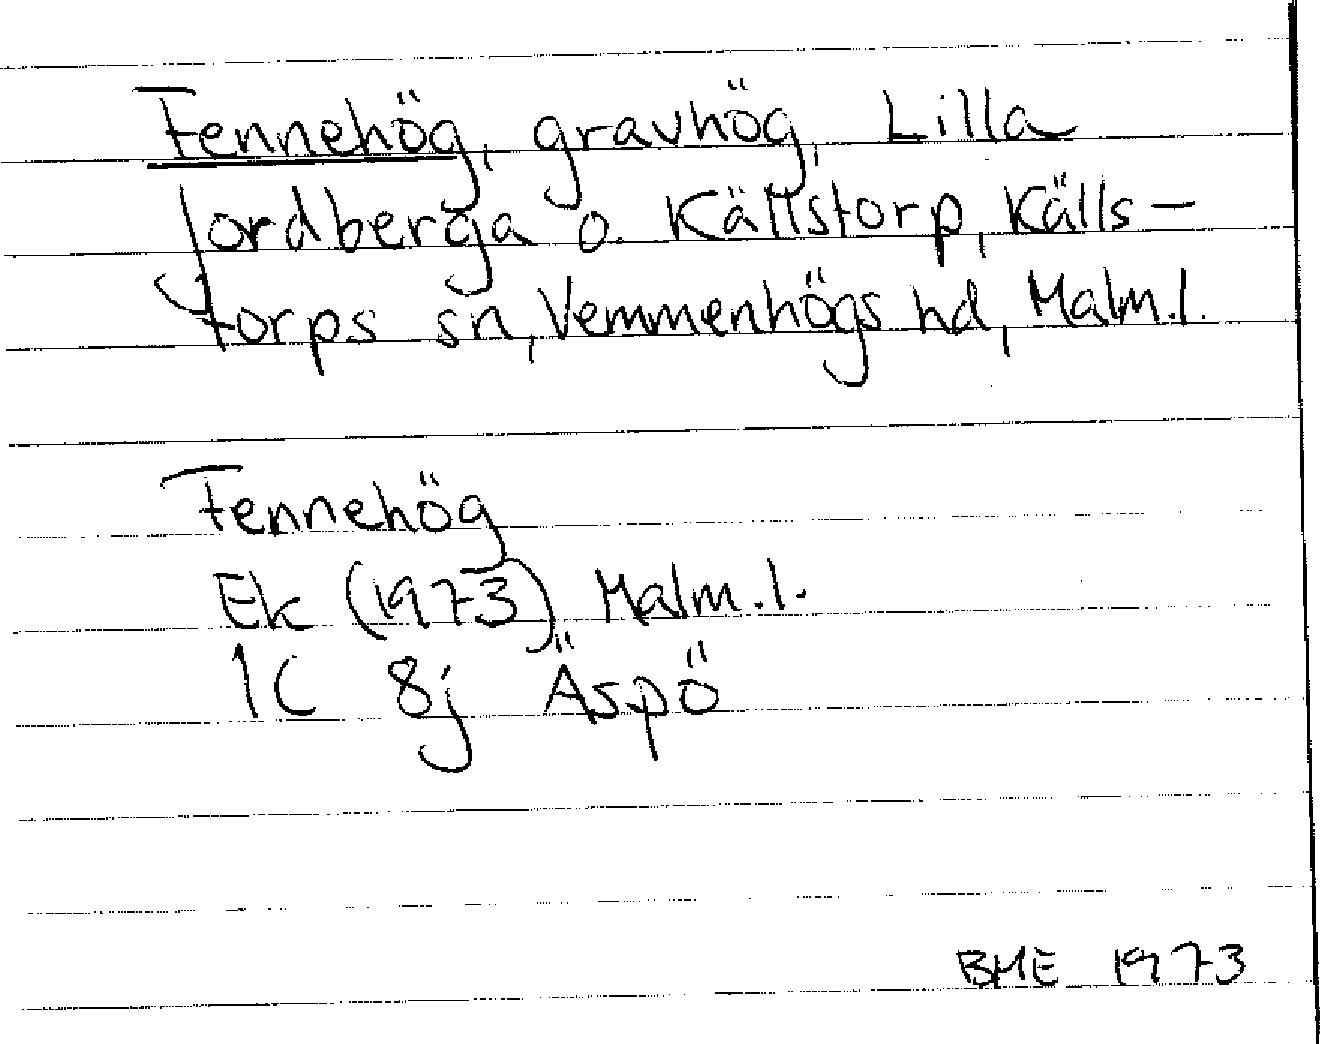 Fennehög, gravhög, Lilla
Jordberga o. Källstorp, Källs-
torps sn, Vemmenhögs hd, Malm.l.
Fennehög
Ek (1973) Malm.l.
1C 8j Äspö
BME 1973